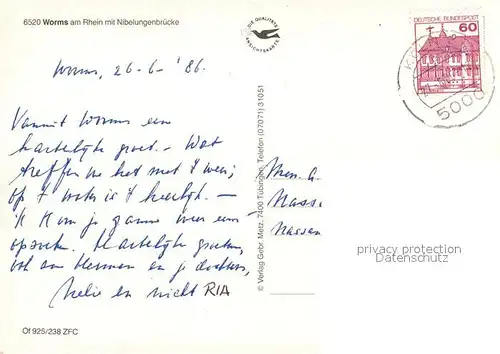 6520 Worms am Rhein mit Nibelungenbrücke
DIE QUALITÄTS
ANSICHTSKARTE
DEUTSCHE BUNDESPOST
60
5000
Worms, 26-6-'86.
Vanuit Worms een
hartelijke groet. - Wat
treffen we het met 't weer;
op 't water is 't heerlijk. -
'k Kom je gauw weer een
opzoek. Hartelijke groeten,
ook aan Herman en je dochters,
RIA
Men.
Nassa
Nassau
© Verlag Gebr. Metz, 7400 Tübingen, Telefon (07071) 31051
privacy protection
Datenschutz
Öf 925/238 ZFC